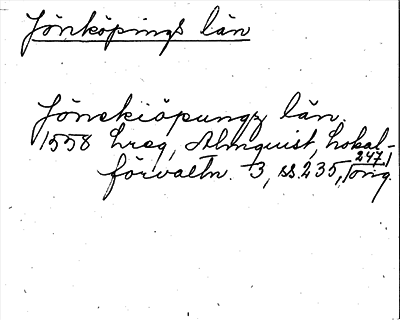 Jönköpings län
Jöneskiöpungz län.
1558 hreg, Almquist, Lokal-
förvaltn. 3, ss. 235, 247. orig.